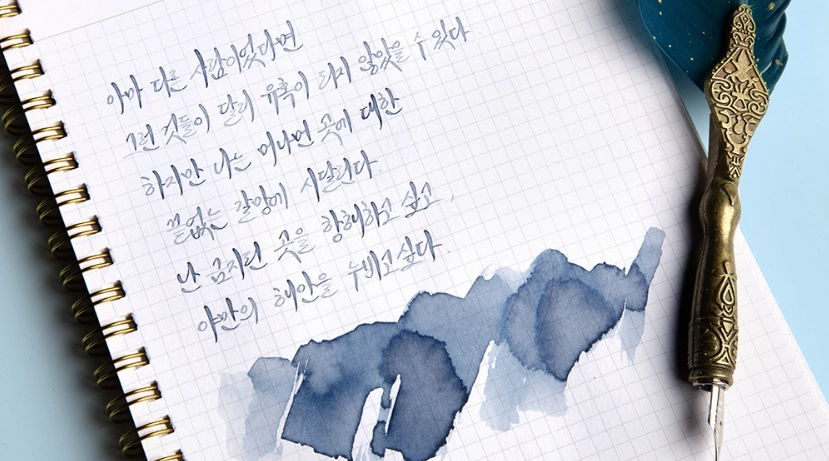 아마 다른 사람이었다면
그런 것들이 달리 유혹이 되지 않았을 수 있다.
하지만 나는 머나먼 곳에 대한
끝없는 갈망에 시달린다.
난 금지된 곳을 항해하고 싶고,
야만의 해안을 누비고 싶다.